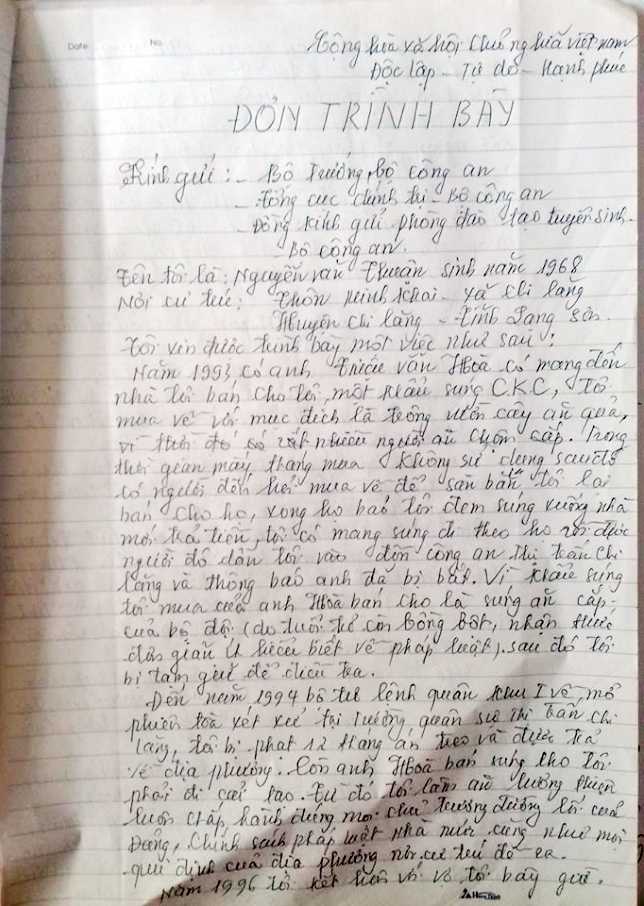 Date No.
Cộng hòa xã hội Chủ nghĩa việt nam
Độc lập - Tự do - Hạnh phúc
ĐƠN TRÌNH BÀY
Kính gửi: - Bộ trưởng bộ công an
- tổng cục chính trị - Bộ công an
- Đồng kính gửi phòng đào tạo tuyển sinh -
- Bộ công an.
tên tôi là: Nguyễn văn Thuân sinh năm 1968
Nơi cư trú: thôn minh khai - xã chi lăng
Huyện chi lăng - tỉnh Lạng Sơn.
tôi xin được trình bày một việc như sau:
Năm 1993 có anh triệu văn Hoà có mang đến
nhà tôi bán cho tôi một khẩu súng C.K.C, tôi
mua về với mục đích là trông vườn cây ăn quả,
vì thời đó có rất nhiều người ăn trộm cắp. Trong
thời gian mấy tháng mua không sử dụng sau đó
có người đến hỏi mua về để săn bắn tôi lại
bán cho họ, xong họ bảo tôi đem súng xuống nhà
mới trả tiền, tôi có mang súng đi theo họ rồi được
người đó dẫn tôi vào đồn công an thị trấn chi
lăng và thông báo anh đã bị bắt. Vì khẩu súng
tôi mua của anh Hoà bán cho là súng ăn cắp
của bộ đội (do tuổi trẻ còn bồng bột, nhận thức
đơn giản ít hiểu biết về pháp luật). sau đó tôi
bị tạm giữ để điều tra.
Đến năm 1994 bộ tư lệnh quân khu I về mở
phiên toà xét xử tại trường quân sự thị trấn chi
lăng, tôi bị phạt 12 tháng án treo và được trả
về địa phương. Còn anh Hoà bán súng cho tôi
phải đi cải tạo. từ đó tôi làm ăn lương thiện
luôn chấp hành đúng mọi chủ trương đường lối của
Đảng, chính sách pháp luật nhà nước cũng như mọi
qui định của địa phương nơi cư trú đề ra.
Năm 1996 tôi kết hôn với vợ tôi bây giờ.